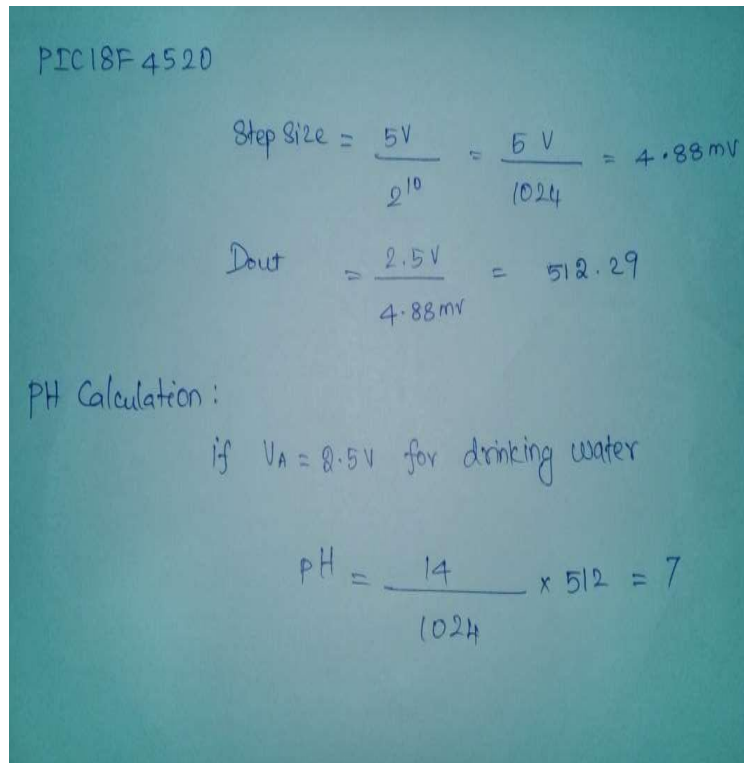 PIC18F4520
Step Size = 5V / 2^10 = 5 V / 1024 = 4.88mV
Dout = 2.5V / 4.88mV = 512.29
PH Calculation:
if VA = 2.5V for drinking water
pH = 14 / 1024 x 512 = 7